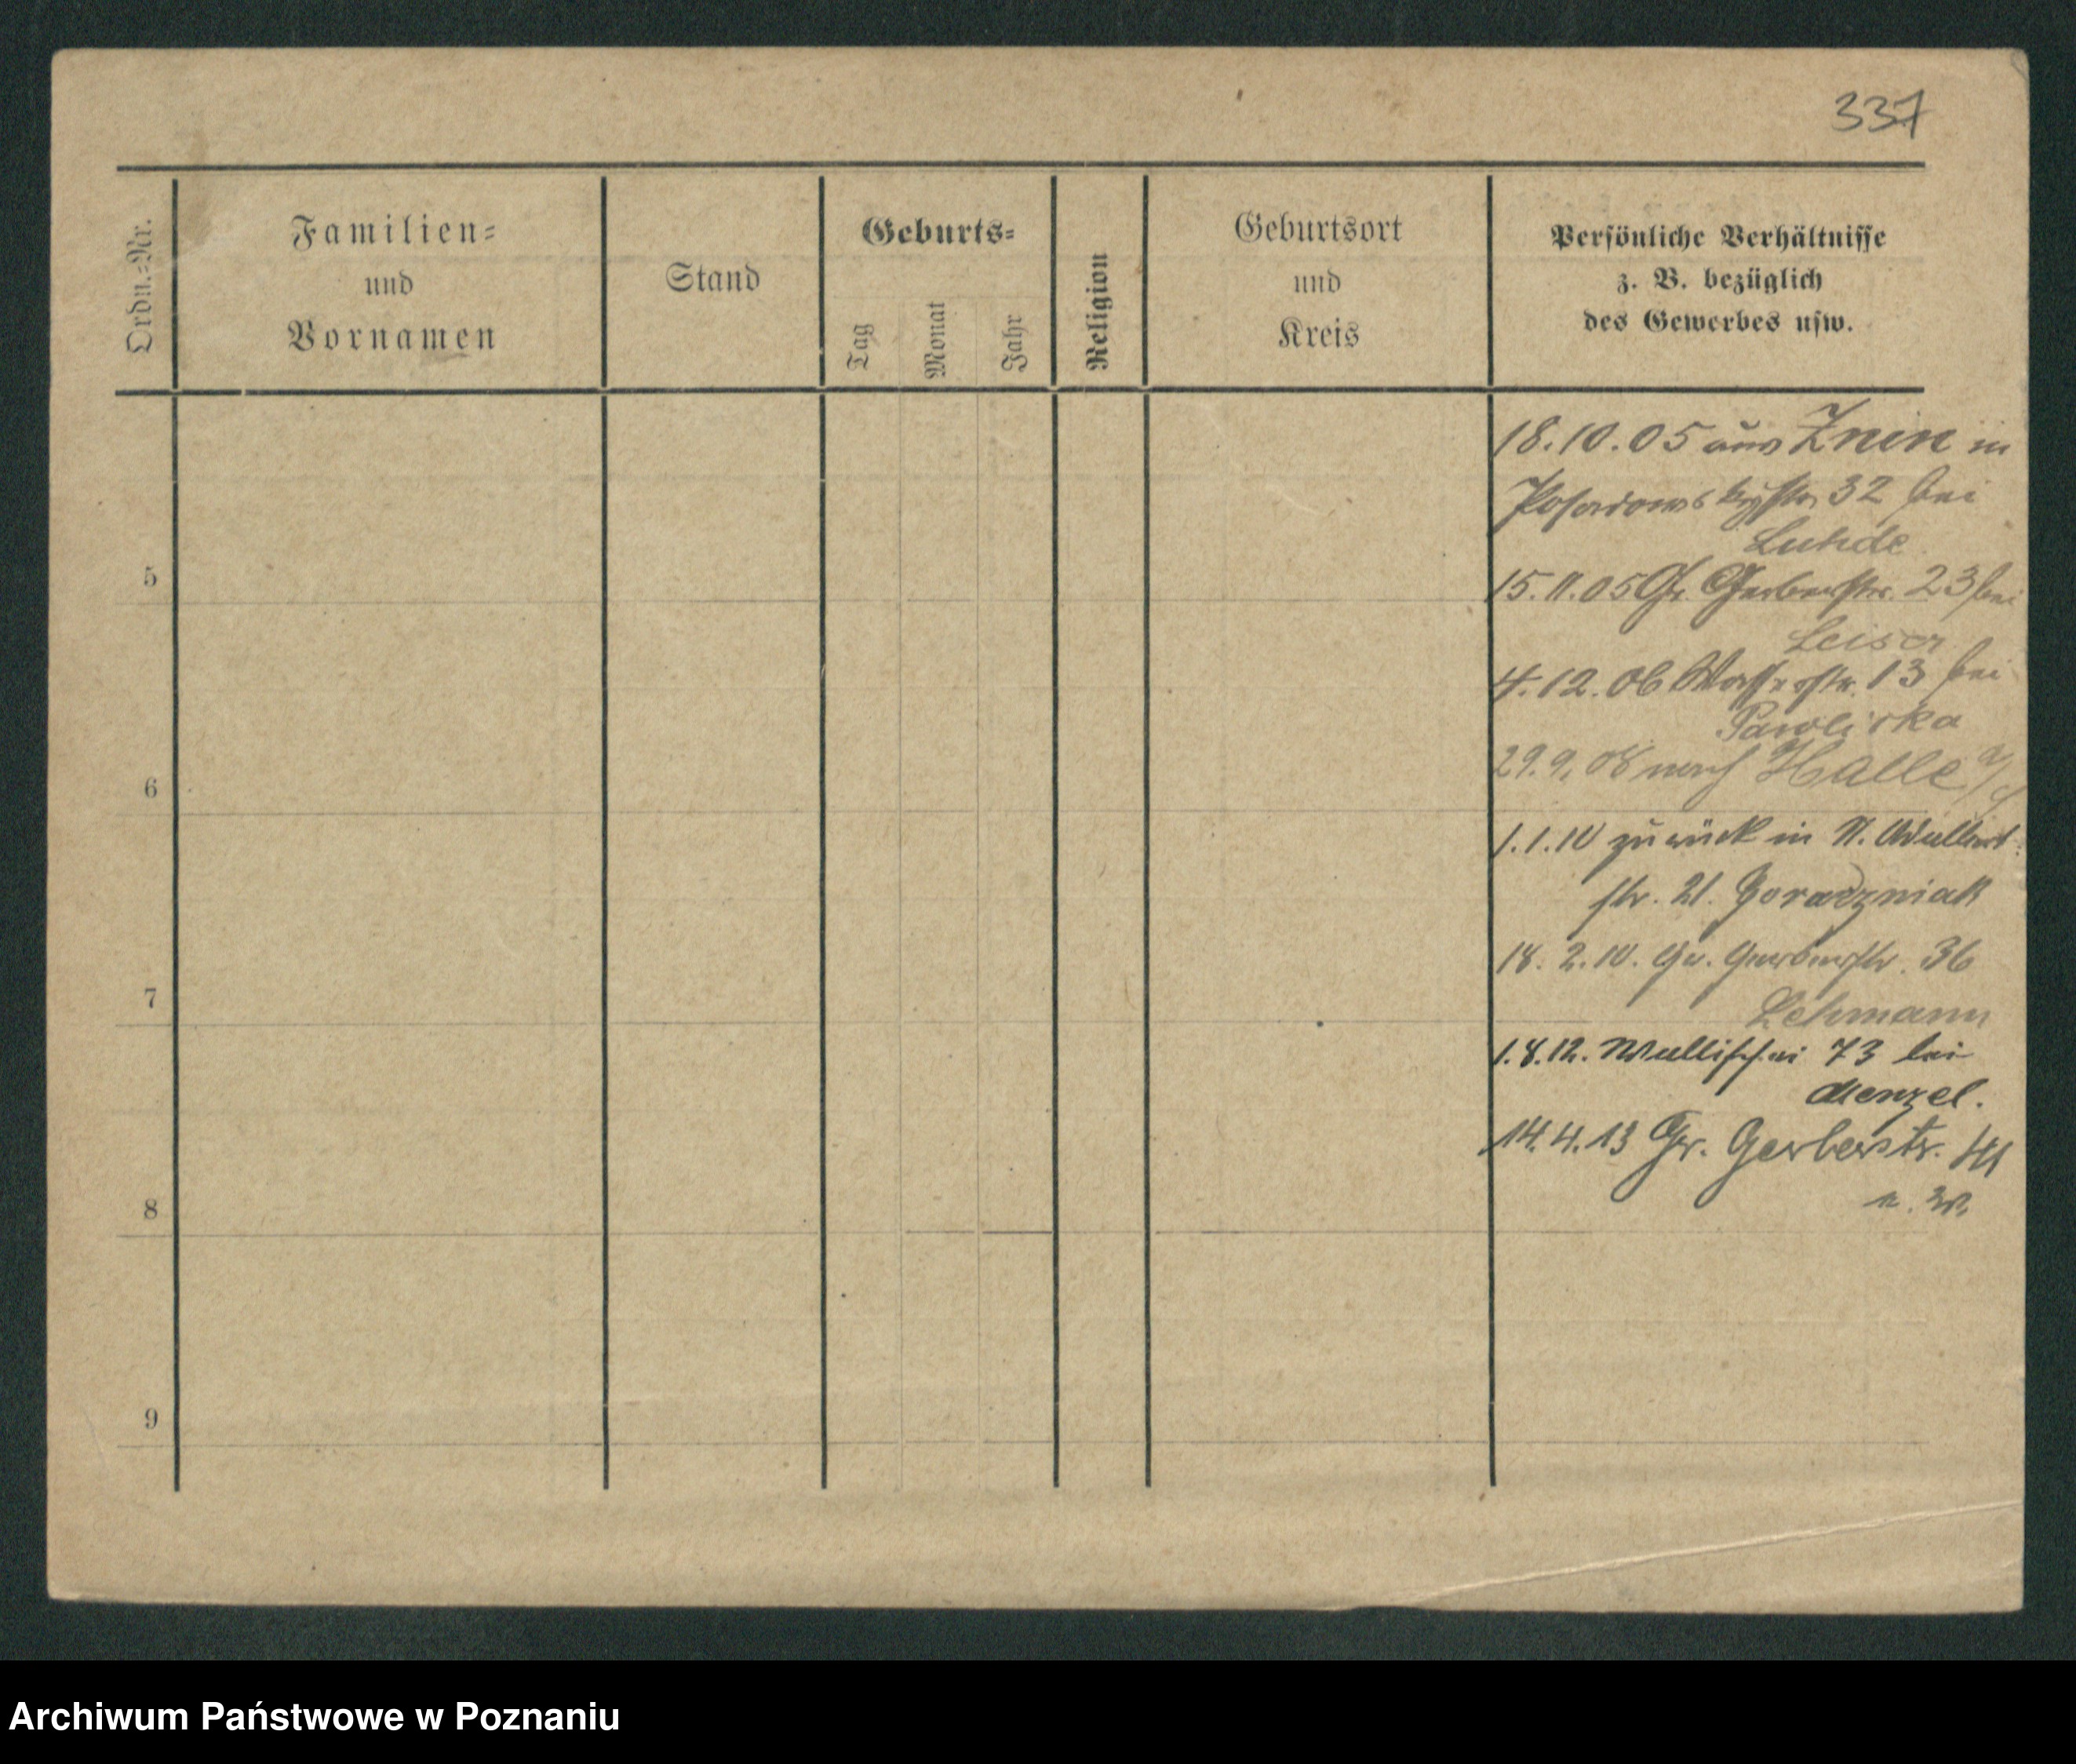 337
Ordn.-Nr.
Familien-
und
Vornamen
Stand
Geburts-
Tag
Monat
Jahr
Religion
Geburtsort
und
Kreis
Persönliche Verhältnisse
z. B. bezüglich
des Gewerbes usw.
18.10.05 aus Znin in
Posadowskystr 32 bei
Luhde
5
15.11.05 Gr. Gerberstr. 23 bei
Leiser
4.12.06 Wasserstr. 13 bei
29.9.08 nach Halle a/S
6
1.1.10 zurück in N.
str. 21.
18.2.10. Gr. Gerberstr. 36
Lehmann
7
1.8.12. Wallischei 73 bei
Menzel.
14.4.13 Gr. Gerberstr. 41
8
9
Archiwum Państwowe w Poznaniu